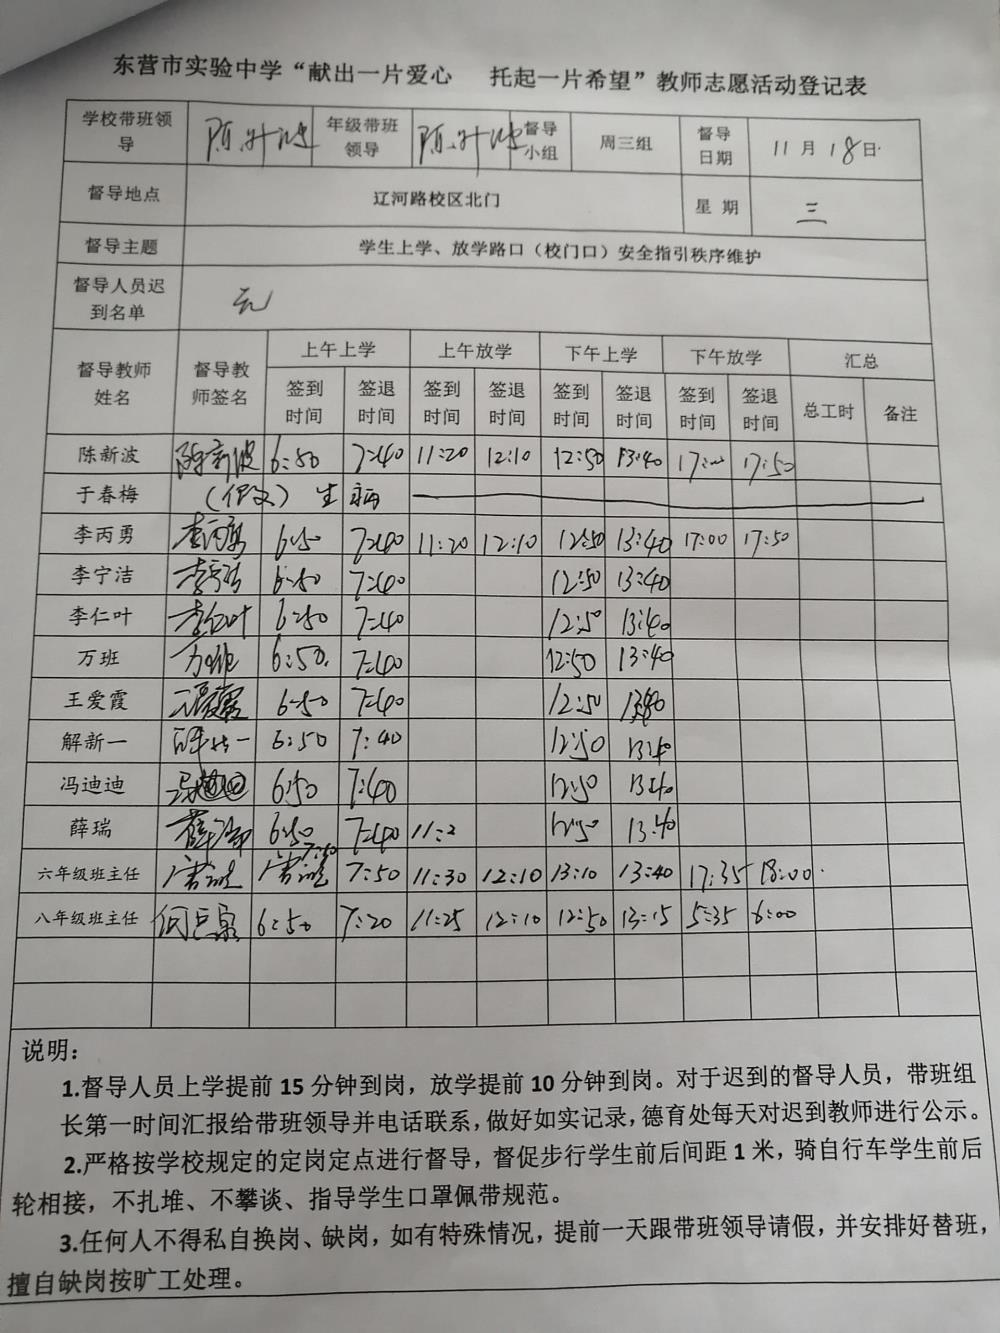 东营市实验中学“献出一片爱心 托起一片希望”教师志愿活动登记表
学校带班领导 年级带班领导 督导小组 周三组 督导日期 11月18日
督导地点 辽河路校区北门 星期 三
督导主题 学生上学、放学路口（校门口）安全指引秩序维护
督导人员迟到名单 无
督导教师姓名 督导教师签名 上午上学 上午放学 下午上学 下午放学 汇总
签到时间 签退时间 签到时间 签退时间 签到时间 签退时间 签到时间 签退时间 总工时 备注
陈新波 陈新波 6:50 7:40 11:20 12:10 12:50 13:40 17:00 17:50
于春梅 生病
李丙勇 李丙勇 6:50 7:40 11:20 12:10 12:50 13:40 17:00 17:50
李宁洁 李宁洁 6:50 7:40 12:50 13:40
李仁叶 李仁叶 6:50 7:40 12:50 13:40
万班 万班 6:50. 7:40 12:50 13:40
王爱霞 王爱霞 6:50 7:40 12:50 13:40
解新一 解新一 6:50 7:40 12:50 13:40
冯迪迪 冯迪迪 6:50 7:40 12:50 13:40
薛瑞 薛瑞 6:50 7:40 11:2 12:50 13:40
六年级班主任 7:50 7:50 11:30 12:10 13:10 13:40 17:35 18:00
八年级班主任 6:50 7:20 11:25 12:10 12:50 13:15 5:35 6:00
说明：
1.督导人员上学提前 15 分钟到岗，放学提前 10 分钟到岗。对于迟到的督导人员，带班组
长第一时间汇报给带班领导并电话联系，做好如实记录，德育处每天对迟到教师进行公示。
2.严格按学校规定的定岗定点进行督导，督促步行学生前后间距 1 米，骑自行车学生前后
轮相接，不扎堆、不攀谈、指导学生口罩佩带规范。
3.任何人不得私自换岗、缺岗，如有特殊情况，提前一天跟带班领导请假，并安排好替班，
擅自缺岗按旷工处理。